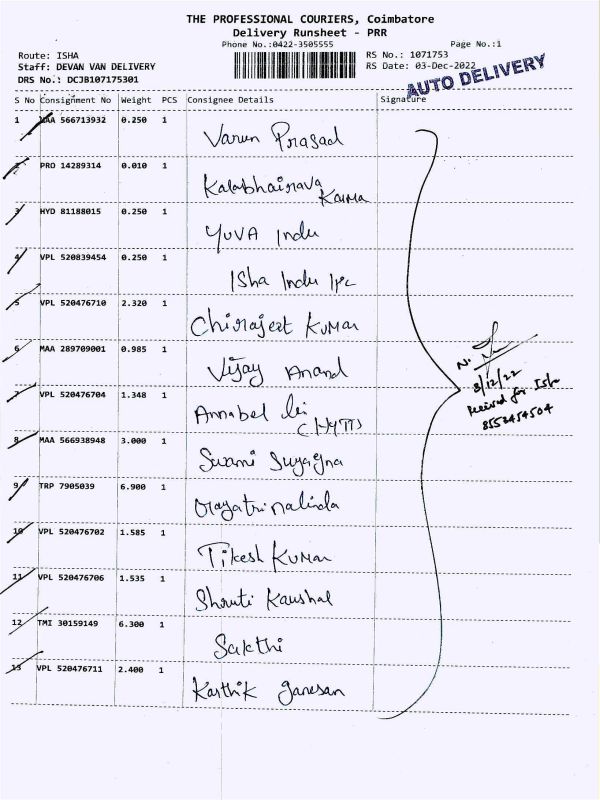 THE PROFESSIONAL COURIERS, Coimbatore
Delivery Runsheet - PRR
Phone No.:0422-3505555 Page No.:1
Route: ISHA RS No.: 1071753
Staff: DEVAN VAN DELIVERY RS Date: 03-Dec-2022
DRS No.: DCJB107175301
AUTO DELIVERY
S No Consignment No Weight PCS Consignee Details Signature
1 MAA 566713932 0.250 1 Varun Prasad
2 PRO 14289314 0.010 1 Kalabhairava
Karma
3 HYD 81188015 0.250 1 YUVA Indu
4 VPL 520839454 0.250 1 Isha Indu
5 VPL 520476710 2.320 1 Chirajeet Kumar
6 MAA 289709001 0.985 1 Vijay Anand
7 VPL 520476704 1.348 1 Annabel
8 MAA 566938948 3.000 1 Swami Suyagna
9 TRP 7905039 6.900 1 Gayatri nalinda
10 VPL 520476702 1.585 1 Tikesh Kumar
11 VPL 520476706 1.535 1 Shruti Kaushal
12 TMI 30159149 6.300 1 Sakthi
13 VPL 520476711 2.400 1 Karthik ganesan
3/12/22
Received for Isha
8553454504